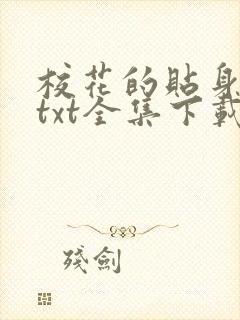 校花的貼身
txt全集下載
殘劍